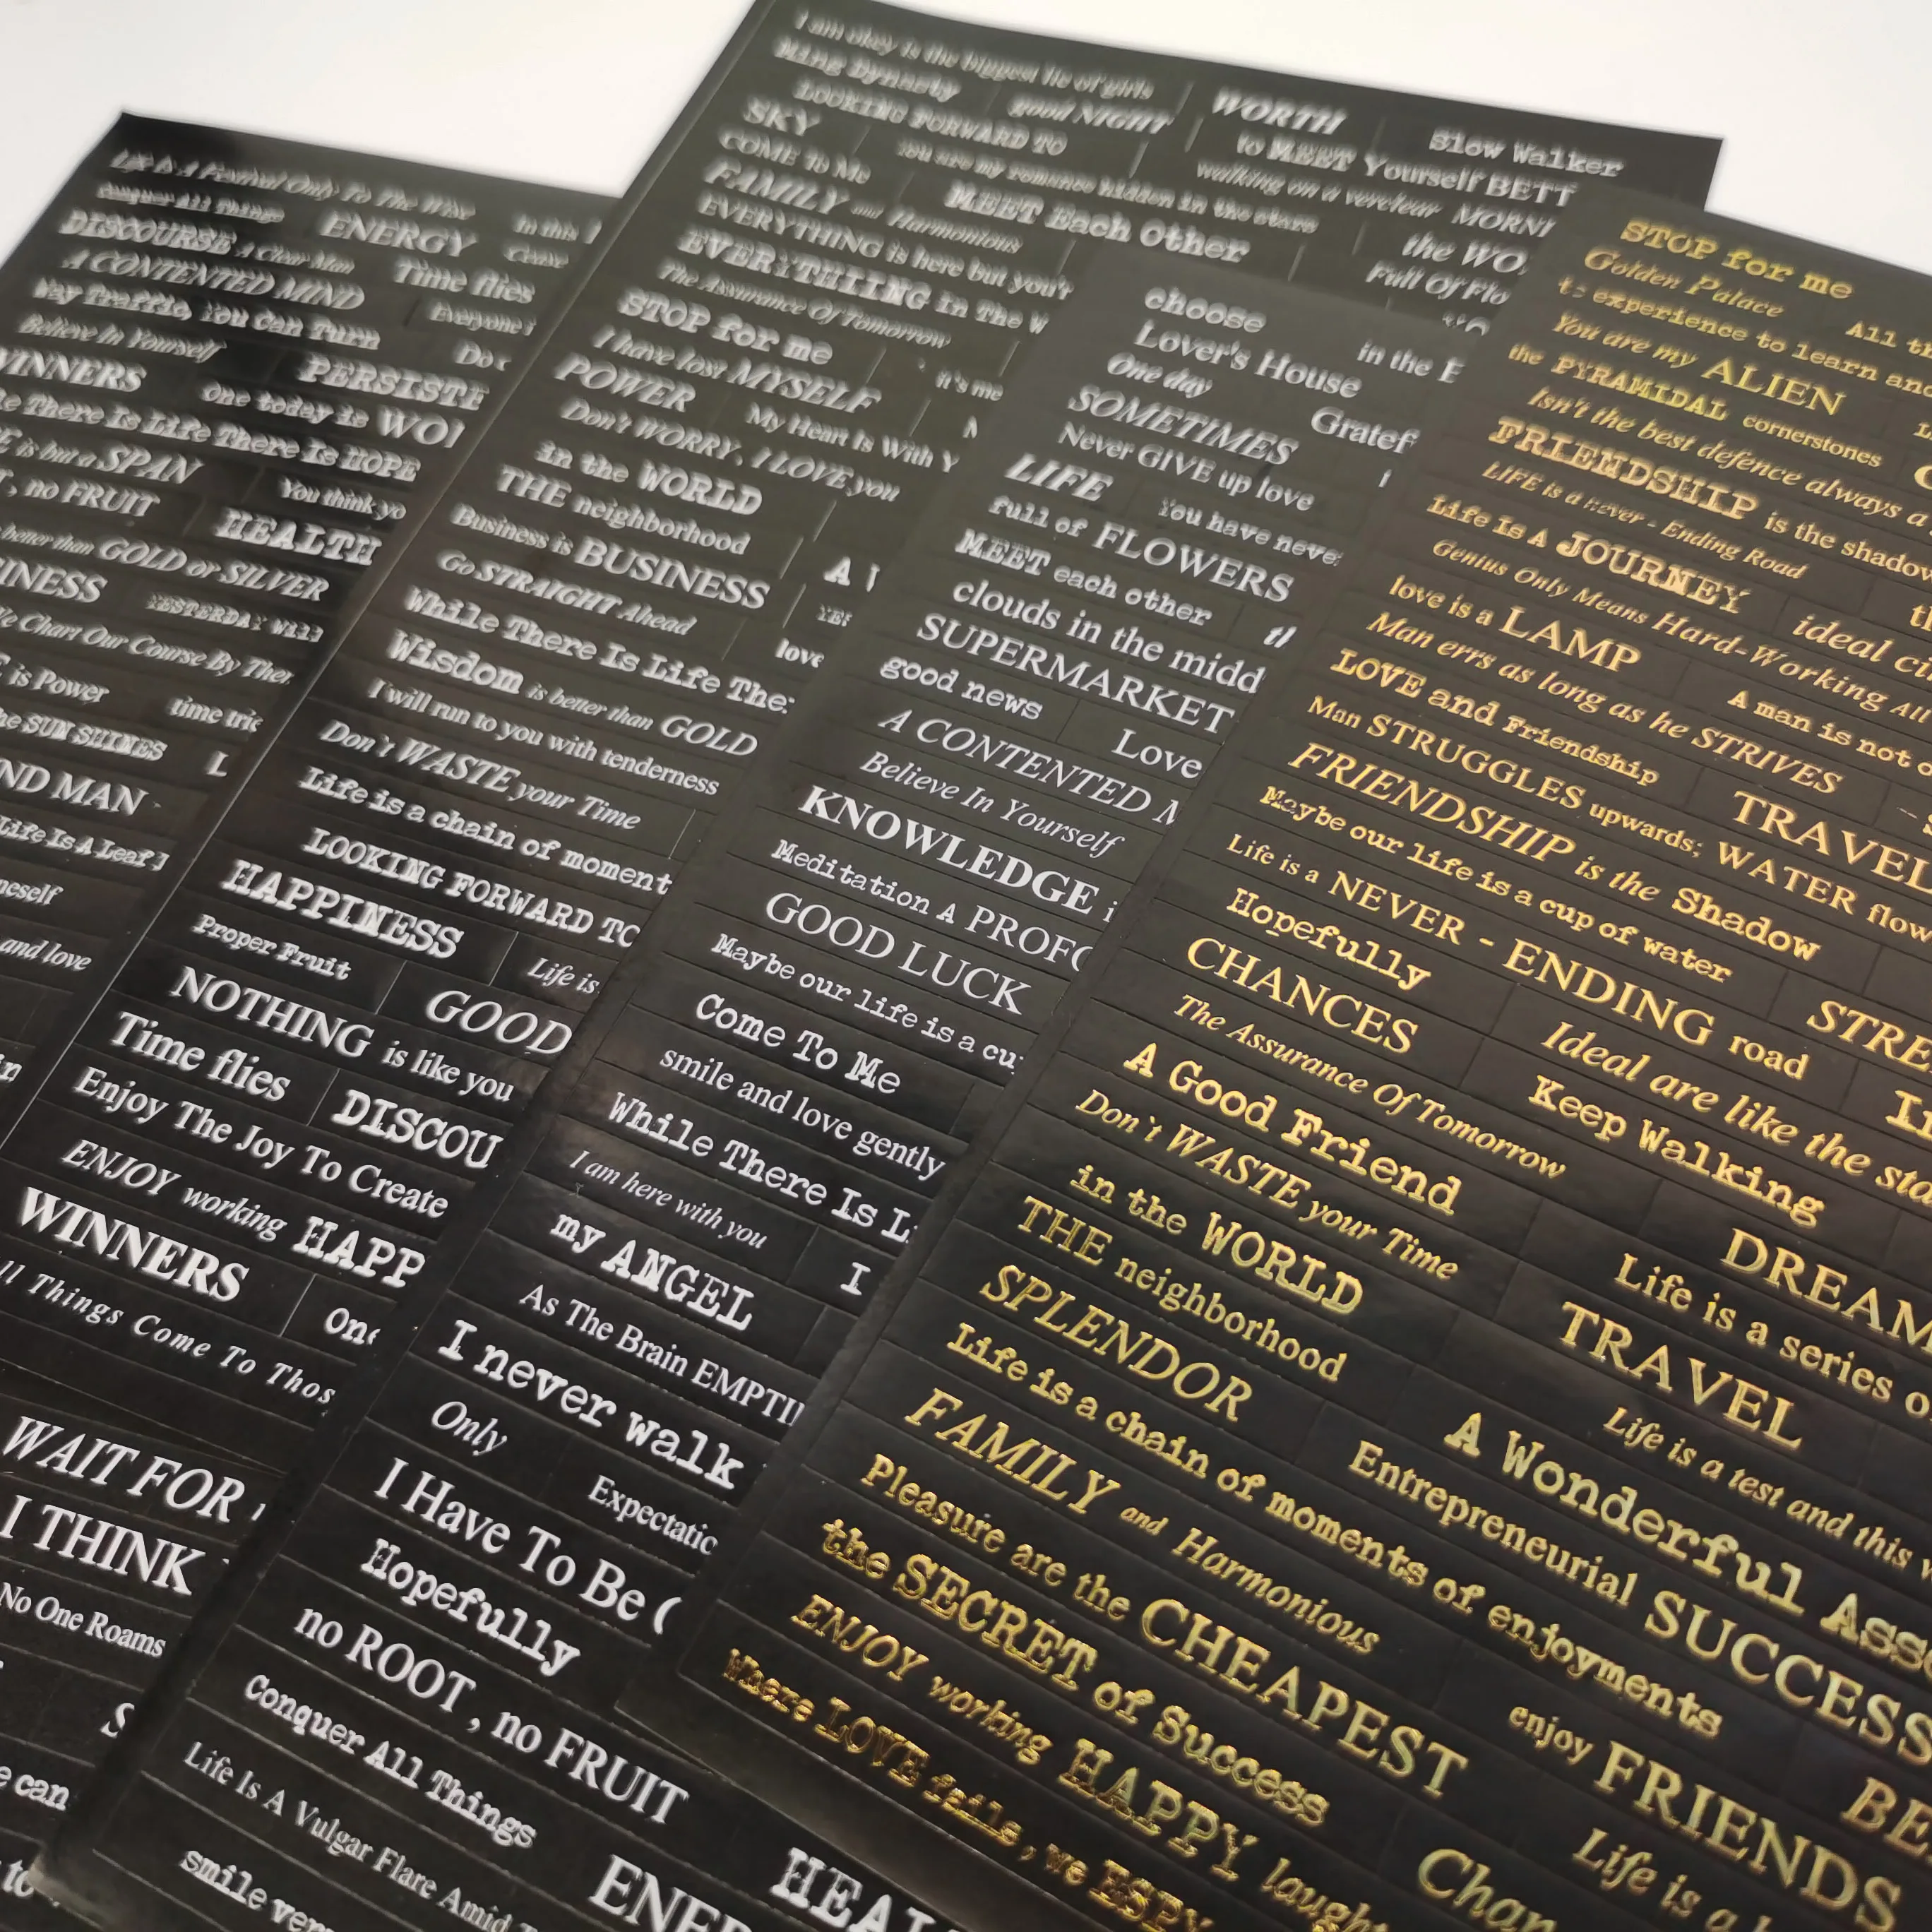 Life Is A Festival Only To The Wise
In this
Conquer All Things
ENERGY
DISCOURSE A Clear Man
A CONTENTED MIND
Time flies
Traffic, You Can Turn
Everyone
Believe In Yourself
WINNERS
PERSISTE
There Is Life There Is HOPE
One today is WO
is but a SPAN
, no FRUIT
You think yo
HEALTH
better than GOLD or SILVER
YESTERDAY WILL
Chart Our Course By
is Power
time
the SUN SHINES
L
ND MAN
Life Is A Leaf
neself
and love
WAIT FOR
I THINK
No One Roams
S
can
to
I am okay is the biggest lie of girls
Ming Dynasty
LOOKING FORWARD TO
good NIGHT
WORTH
Slow Walker
SKY
to MEET Yourself BETT
COME to Me
You are my romance hidden in the stars
walking on a MORNI
FAMILY and Harmonious
MEET Each Other
the WO
EVERYTHING is here but you'r
Full Of Flo
EVERYTHIING in The W
The Assurance Of Tomorrow
STOP for me
I have lost MYSELF
it's me
POWER
My Heart Is With Y
Don't WORRY, I LOVE you
in the WORLD
THE neighborhood
Business is BUSINESS
A
Go STRAIGHT Ahead
YES
While There Is Life The
love
Wisdom is better than GOLD
I will run to you with tenderness
Don't WASTE your Time
Life is a chain of moment
LOOKING FORWARD TO
HAPPINESS
Life is
Proper Fruit
GOOD
NOTHING is like you
Time flies
DISCOU
Enjoy The Joy To Create
ENJOY working HAPP
WINNERS
One
ll Things Come To Thos
choose
Lover's House
in the
One day
Gratef
SOMETIMES
Never GIVE up love
LIFE
You have neve
full of FLOWERS
MEET each other
clouds in the midd
SUPERMARKET
good news
Love
A CONTENTED M
Believe In Yourself
KNOWLEDGE i
Meditation A PROFO
GOOD LUCK
Maybe our life is a cu
Come To Me
smile and love gently
While There Is L
I am here with you
I
my ANGEL
As The Brain EMPTI
I never walk
Only
Expectatio
I Have To Be
Hopefully
no ROOT , no FRUIT
Conquer All Things
HEAL
Life Is A Vulgar Flare Amid
ENE
smile ver
STOP for me
Golden Palace
All th
to experience to learn an
You are my ALIEN
the PYRAMIDAL cornerstones
Isn't the best defence always a
FRIENDSHIP is the shadow
LIFE is a never - Ending Road
Life Is A JOURNEY
ideal ci
Genius Only Means Hard-Working All
love is a LAMP
A man is not o
Man errs as long as he STRIVES
LOVE and Friendship
TRAVEL
Man STRUGGLES upwards; WATER flow
FRIENDSHIP is the Shadow
Maybe our life is a cup of water
STRE
Life is a NEVER - ENDING road
Hopefully
Ideal are like the sta
CHANCES
Keep Walking
The Assurance Of Tomorrow
A Good Friend
DREAM
Don't WASTE your Time
Life is a series o
in the WORLD
TRAVEL
THE neighborhood
Life is a test and this w
SPLENDOR
A Wonderful Asse
Life is a chain of moments of enjoyments
Entrepreneurial SUCCESS
FAMILY and Harmonious
Pleasure are the CHEAPEST
enjoy FRIENDS
BE
the SECRET of Success
Life is a
ENJOY working HAPPY laught
Chan
Where LOVE fails, we ESPY